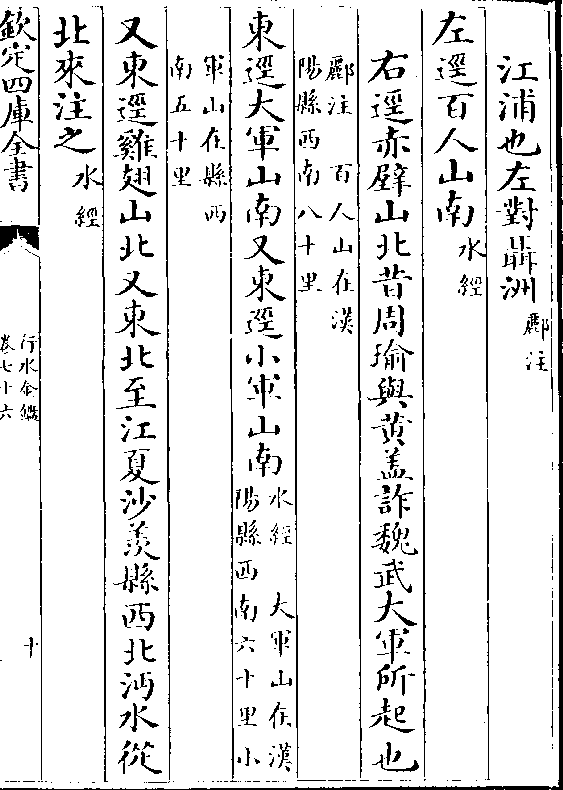 江浦也左對聶洲酈注
左逕百人山南水經
右逕赤壁山北昔周瑜與黄盖詐魏武大軍所起也
酈注 百人山在漢
陽縣西南八十里
東逕大軍山南又東逕小軍山南水經 大軍山在漢
陽縣西南六十里小
軍山在縣西
南五十里
又東逕雞翅山北又東北至江夏沙羨縣西北沔水從
北來注之水經
欽定四庫全書
行水金鑑
卷七十六
十